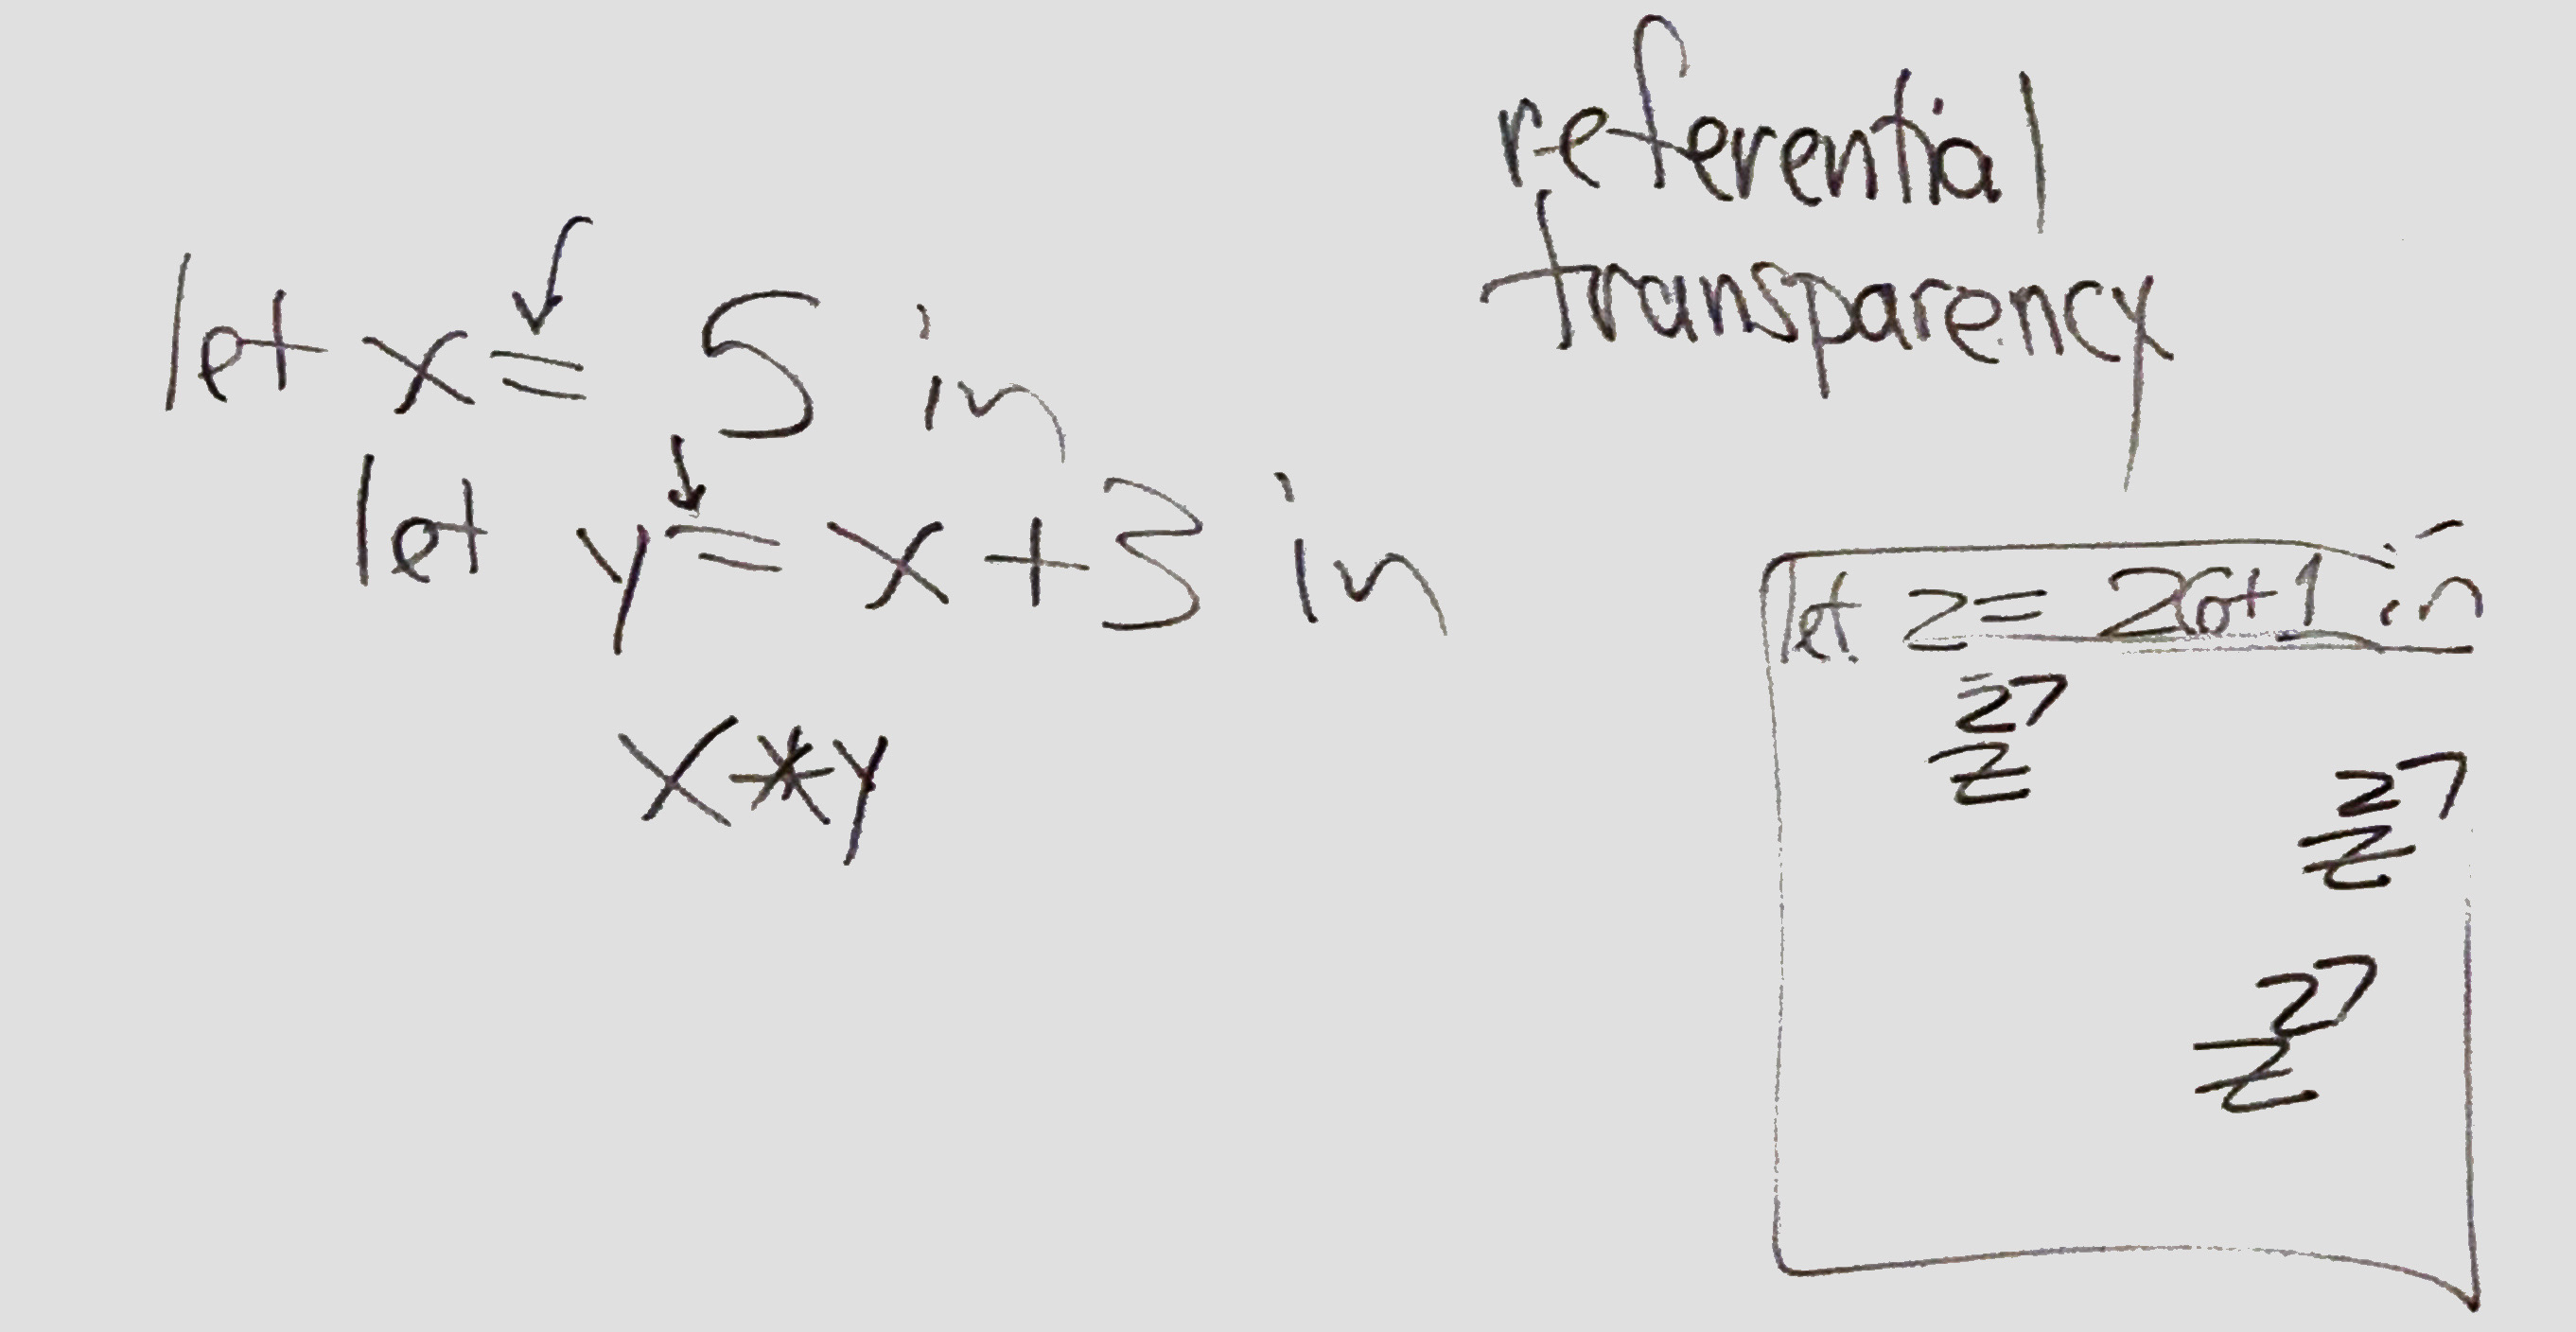 let x = 5 in
let y = x + 3 in
x * y
referential
transparency
let z = 26+1 in
27
z
27
z
27
z